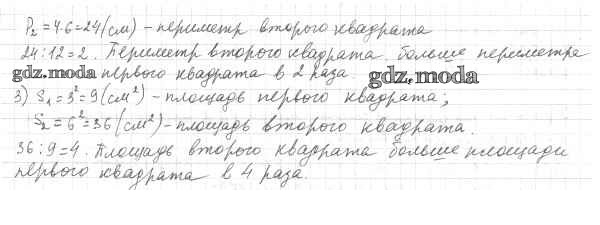 P₂ = 4·6 = 24 (см) – периметр второго квадрата
24 : 12 = 2. Периметр второго квадрата больше периметра
gdz.moda первого квадрата в 2 раза gdz.moda
3) S₁ = 3² = 9 (см²) – площадь первого квадрата;
S₂ = 6² = 36 (см²) – площадь второго квадрата.
36 : 9 = 4. Площадь второго квадрата больше площади
первого квадрата в 4 раза.